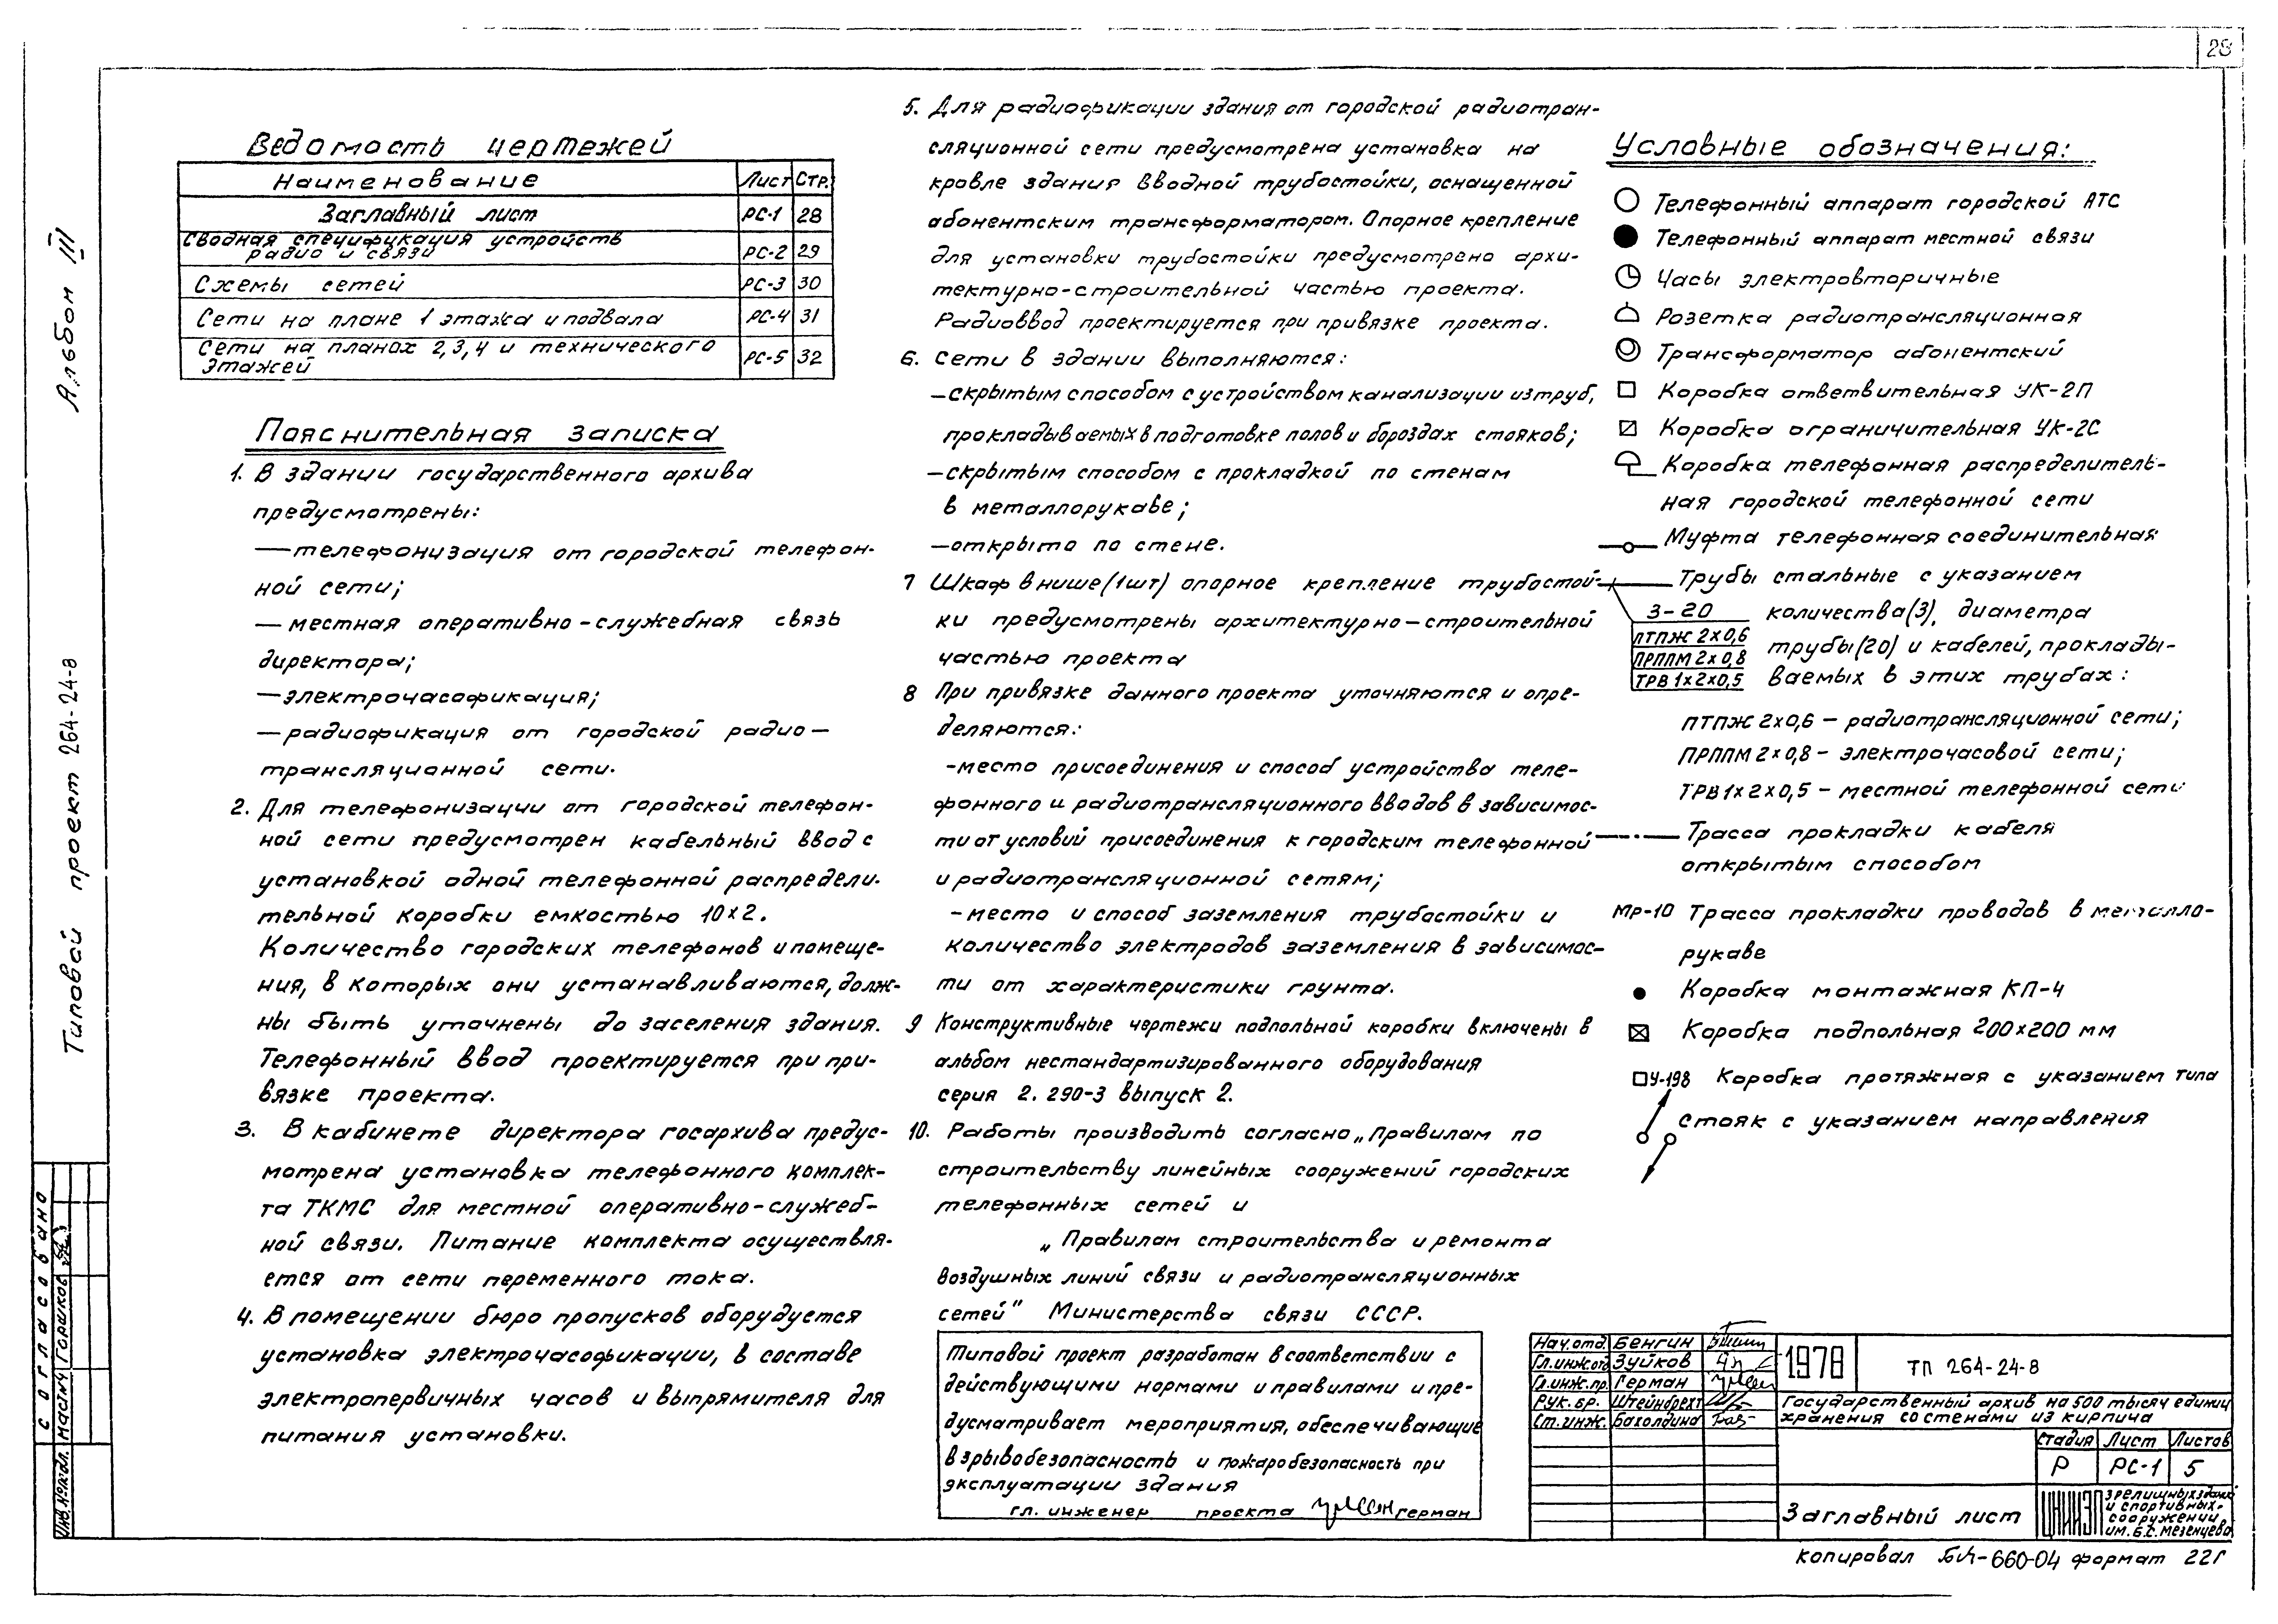 28
Альбом III
Типовой проект 264-24-8
Согласовано
Маст.М4 Горшков
Инв.№подл.
Ведомость чертежей
Наименование Лист Стр.
Заглавный лист РС-1 28
Сводная спецификация устройств
радио и связи РС-2 29
Схемы сетей РС-3 30
Сети на плане 1 этажа и подвала РС-4 31
Сети на планах 2,3,4 и технического
Этажей РС-5 32
Пояснительная записка
1. В здании государственного архива
предусмотрены:
—телефонизация от городской телефон-
ной сети;
—местная оперативно-служебная связь
директора;
—электрочасофикация;
—радиофикация от городской радио—
трансляционной сети.
2. Для телефонизации от городской телефон-
ной сети предусмотрен кабельный ввод с
установкой одной телефонной распредели-
тельной коробки емкостью 10х2.
Количество городских телефонов и помеще-
ния, в которых они устанавливаются, долж-
ны быть уточнены до заселения здания.
Телефонный ввод проектируется при при-
вязке проекта.
3. В кабинете директора госархива предус-
мотрена установка телефонного комплек-
та ТКМС для местной оперативно-служеб-
ной связи. Питание комплекта осуществля-
ется от сети переменного тока.
4. В помещении бюро пропусков оборудуется
установка электрочасофикации, в составе
электропервичных часов и выпрямителя для
питания установки.
5. Для радиофикации здания от городской радиотран-
сляционной сети предусмотрена установка на
кровле здания вводной трубостойки, оснащенной
абонентским трансформатором. Опорное крепление
для установки трубостойки предусмотрено архи-
тектурно-строительной частью проекта.
Радиоввод проектируется при привязке проекта.
6. Сети в здании выполняются:
—скрытым способом с устройством канализации из труб,
прокладываемых в подготовке полов и бороздах стояков;
—скрытым способом с прокладкой по стенам
в металлорукаве;
—открыто по стене.
7 Шкаф в нише (1шт) опорное крепление трубостой-
ки предусмотрены архитектурно-строительной
частью проекта
8 При привязке данного проекта уточняются и опре-
деляются:
-место присоединения и способ устройства теле-
фонного и радиотрансляционного вводов в зависимос-
ти от условий присоединения к городским телефонной
и радиотрансляционной сетям;
-место и способ заземления трубостойки и
количество электродов заземления в зависимос-
ти от характеристики грунта.
9 Конструктивные чертежи подпольной коробки включены в
альбом нестандартизированного оборудования
серия 2.290-3 выпуск 2.
10. Работы производить согласно „Правилам по
строительству линейных сооружений городских
телефонных сетей и
„Правилам строительства и ремонта
воздушных линий связи и радиотрансляционных
сетей" Министерства связи СССР.
Типовой проект разработан в соответствии с
действующими нормами и правилами и пре-
дусматривает мероприятия, обеспечивающие
взрывобезопасность и пожаробезопасность при
эксплуатации здания
гл. инженер проекта Герман
Условные обозначения:
Телефонный аппарат городской АТС
Телефонный аппарат местной связи
Часы электровторичные
Розетка радиотрансляционная
Трансформатор абонентский
Коробка ответвительная УК-2П
Коробка ограничительная УК-2С
Коробка телефонная распределитель-
ная городской телефонной сети
Муфта телефонная соединительная
Трубы стальные с указанием
3-20 количества(3), диаметра
ПТПЖ 2х0,6
ПРППМ 2х0,8 трубы(20) и кабелей, проклады-
ТРВ 1х2х0,5 ваемых в этих трубах:
ПТПЖ 2х0,6 — радиотрансляционной сети;
ПРППМ 2х0,8 - электрочасовой сети;
ТРВ 1х2х0,5 — местной телефонной сети
Трасса прокладки кабеля
открытым способом
Мр-10 Трасса прокладки проводов в металло-
рукаве
Коробка монтажная КП-4
Коробка подпольная 200х200 мм
У-198 Коробка протяжная с указанием типа
Стояк с указанием направления
Нач.отд. Бенгин
Гл.инж.отд Зуйков
Гл.инж.пр. Герман
Рук.бр. Штейнбрехт
Ст.инж. Бахолдина
1978
ТП 264-24-8
Государственный архив на 500 тысяч единиц
хранения со стенами из кирпича
Стадия Лист Листов
Р РС-1 5
Заглавный лист
ЦНИИЭП
зрелищных зданий
и спортивных
сооружений
им. Б.С. Мезенцева
Копировал -660-04 формат 22Г